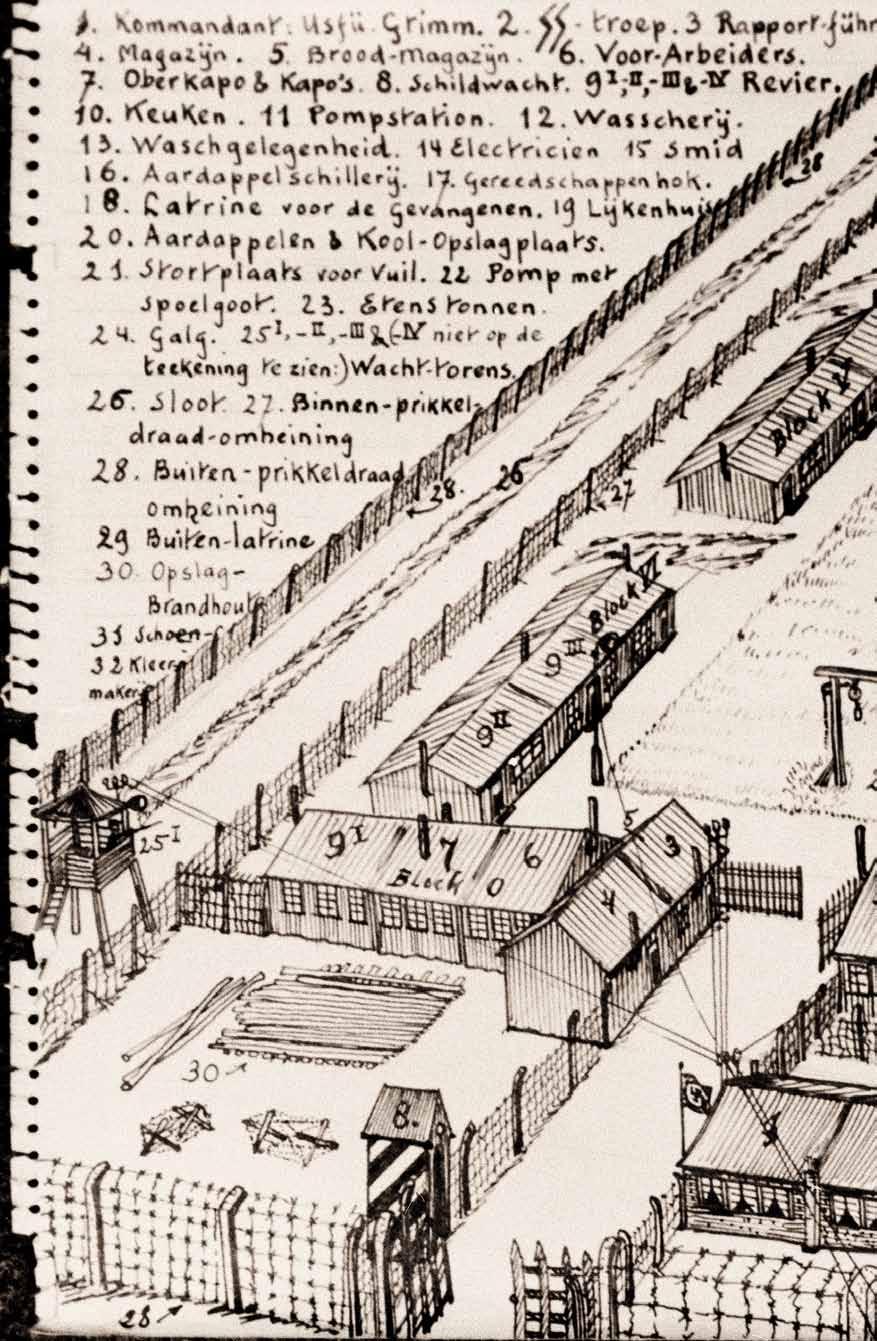 1. Kommandant: Usfü. Grimm. 2. SS-troep. 3 Rapport-führ
4. Magazijn. 5. Brood-magazijn. 6. Voor-Arbeiders.
7. Oberkapo & Kapo's. 8. Schildwacht. 9 I,-II,-III&-IV Revier.
10. Keuken. 11 Pompstation. 12. Wasscherij.
13. Waschgelegenheid. 14 Electricien 15 Smid
16. Aardappelschillerij. 17. Gereedschappenhok.
18. Latrine voor de Gevangenen. 19 Lijkenhuis
20. Aardappelen & Kool-Opslagplaats.
21. Stortplaats voor Vuil. 22 Pomp met
spoelgoot. 23. Etenstonnen.
24. Galg. 25 I,-II,-III&(-IV niet op de
teekening te zien:) Wacht-torens.
26. Sloot. 27. Binnen-prikkel-
draad-omheining
28. Buiten-prikkeldraad
omheining
29 Buiten-latrine
30. Opslag-
Brandhout
31 Schoen-
32 Kleer-
maker
28
28.
26
27
Block V
Block VI
9 III
9 II
25 I
9 I
7
6
Block 0
5
3
4
30
8.
1
2
28